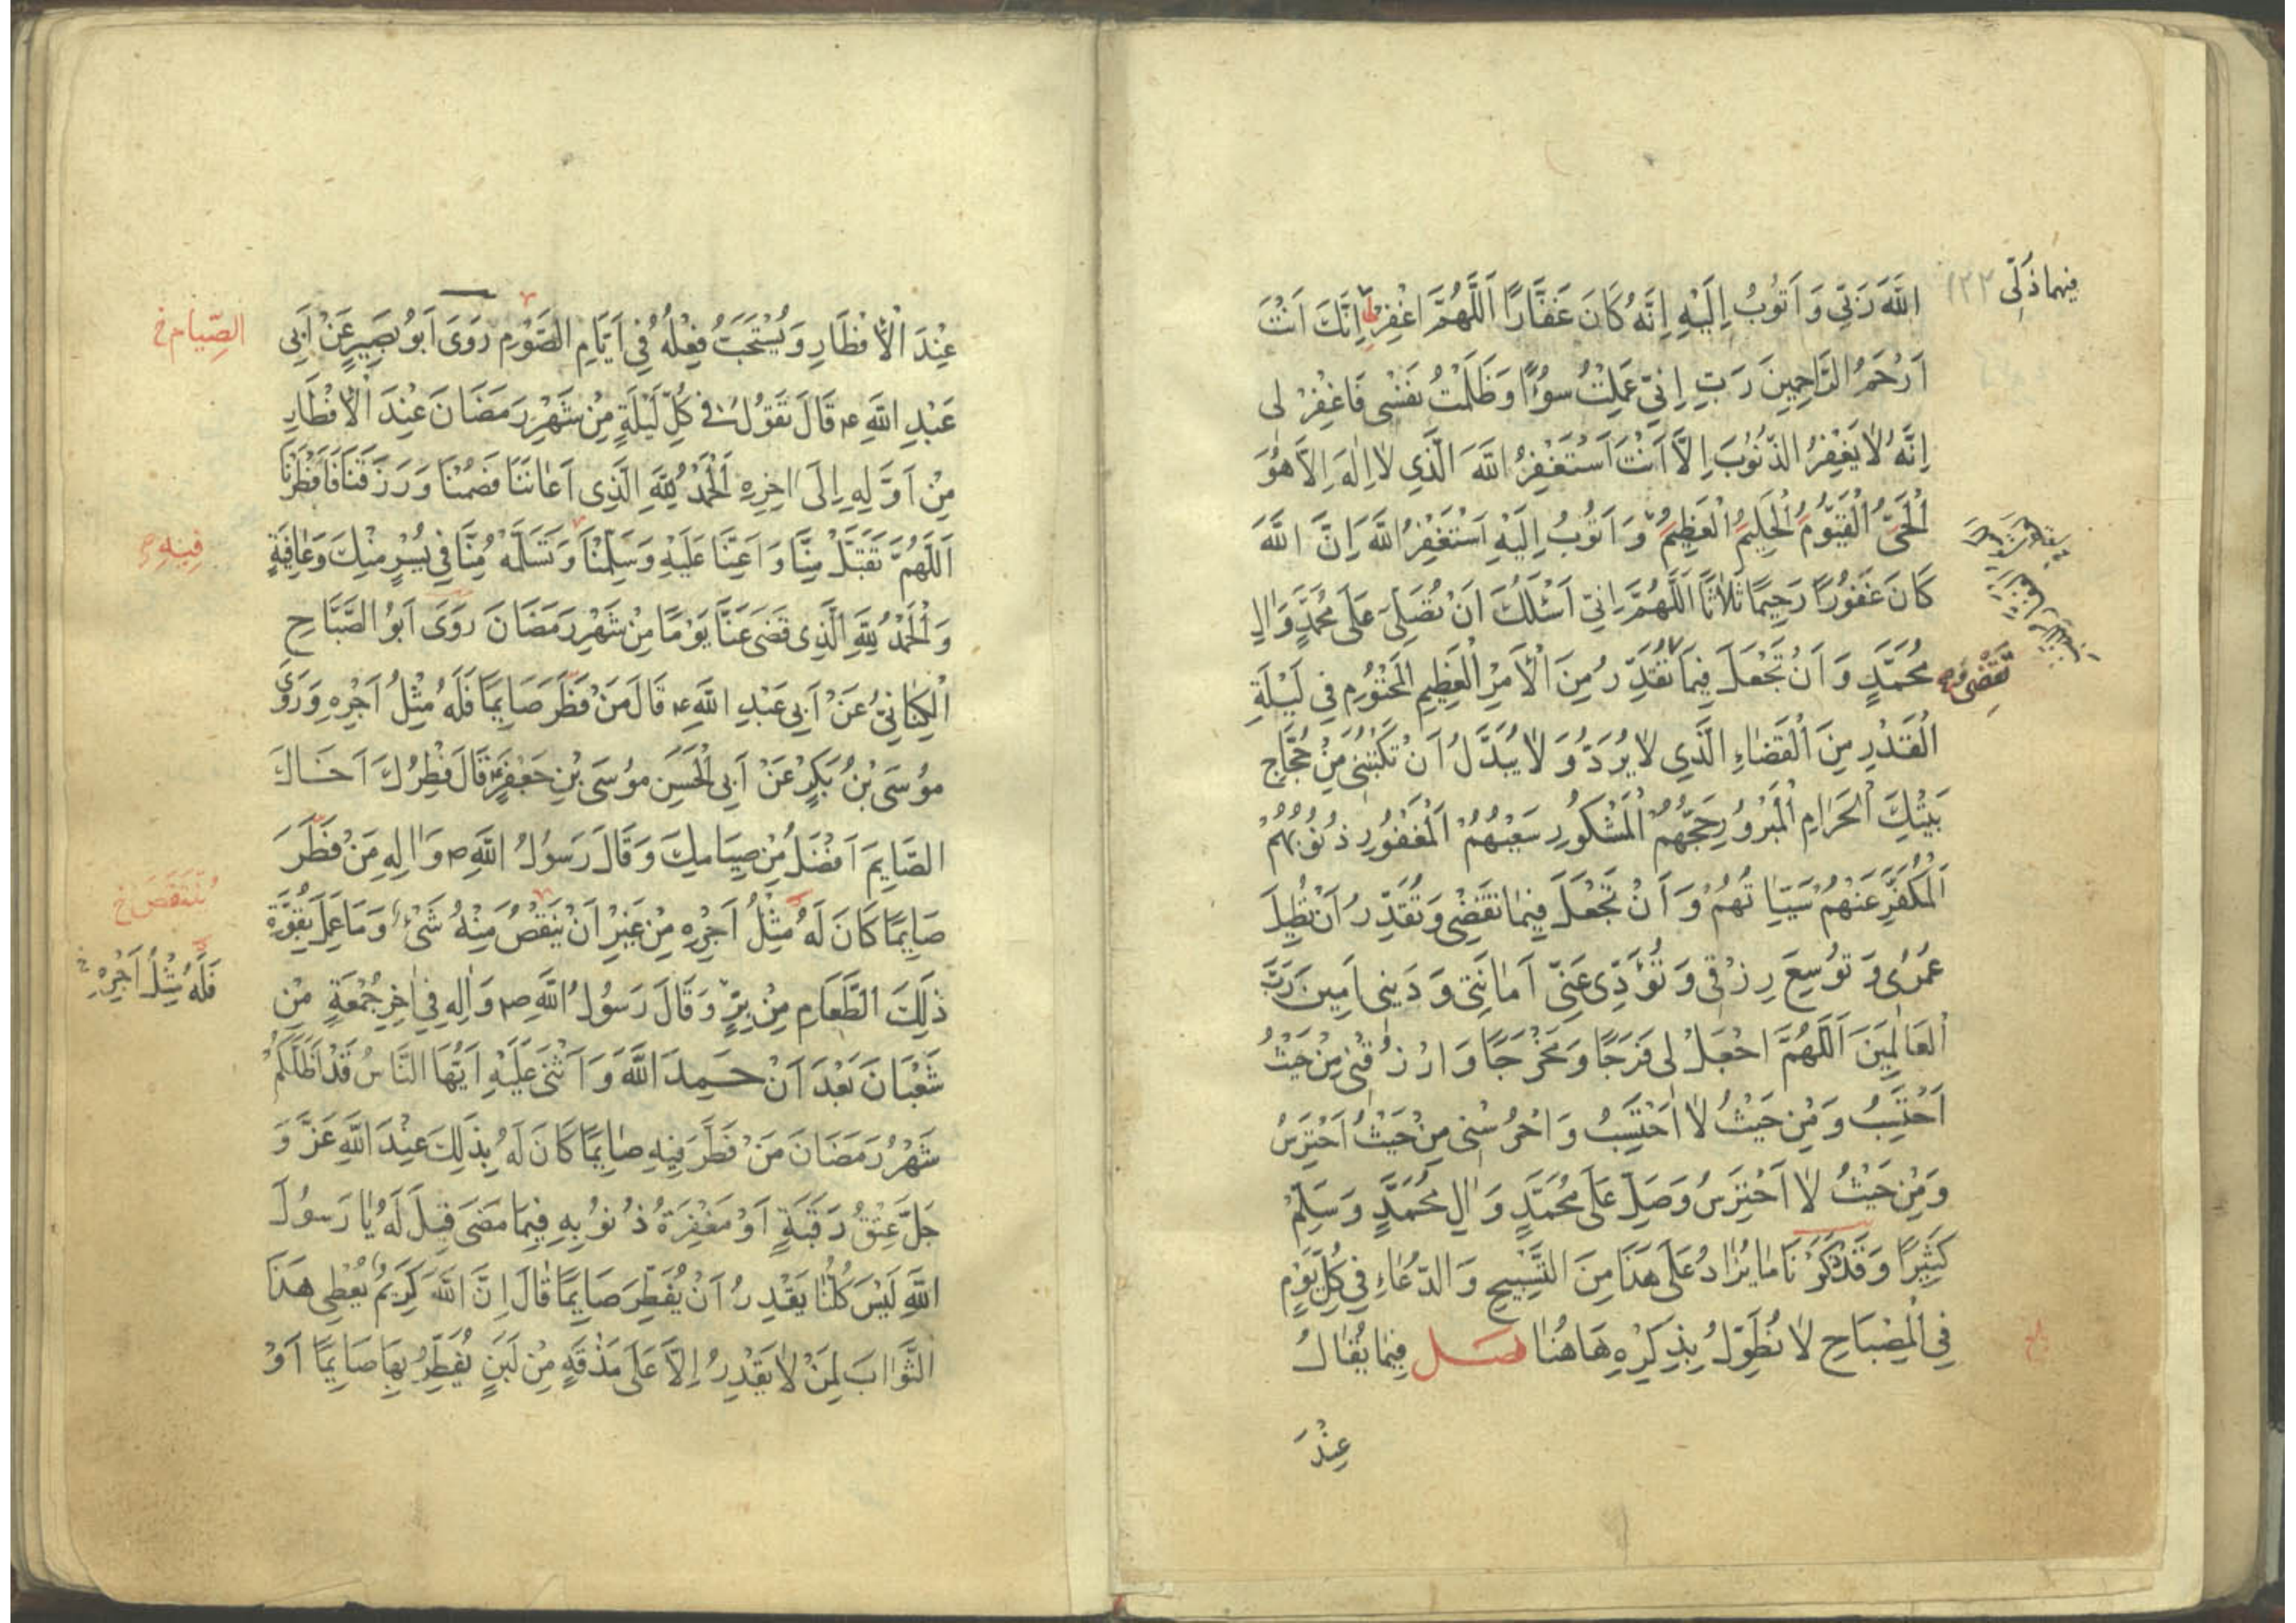 اللَّهَ رَبِّي وَ اَتُوبُ اِلَيْهِ اِنَّهُ كَانَ غَفَّارًا اَللَّهُمَّ اغْفِرْ لِي اِنَّكَ اَنْتَ
اَرْحَمُ الرَّاحِمِينَ رَبِّ اِنِّي عَمِلْتُ سُوءًا وَ ظَلَمْتُ نَفْسِي فَاغْفِرْ لِي
اِنَّهُ لَا يَغْفِرُ الذُّنُوبَ اِلَّا اَنْتَ اَسْتَغْفِرُ اللَّهَ الَّذِي لَا اِلَهَ اِلَّا هُوَ
اَلْحَيُّ الْقَيُّومُ الْحَلِيمُ الْعَظِيمُ وَ اَتُوبُ اِلَيْهِ اَسْتَغْفِرُ اللَّهَ اِنَّ اللَّهَ
كَانَ غَفُورًا رَحِيمًا ثَلَاثًا اَللَّهُمَّ اِنِّي اَسْئَلُكَ اَنْ تُصَلِّيَ عَلَى مُحَمَّدٍ وَ الِ
مُحَمَّدٍ وَ اَنْ تَجْعَلَ فِيمَا تُقَدِّرُ مِنَ الْاَمْرِ الْعَظِيمِ الْمَحْتُومِ فِي لَيْلَةِ
الْقَدْرِ مِنَ الْقَضَاءِ الَّذِي لَا يُرَدُّ وَ لَا يُبَدَّلُ اَنْ تَكْتُبَنِي مِنْ حُجَّاجِ
بَيْتِكَ الْحَرَامِ الْمَبْرُورِ حَجُّهُمُ الْمَشْكُورِ سَعْيُهُمُ الْمَغْفُورِ ذُنُوبُهُمُ
الْمُكَفَّرِ عَنْهُمْ سَيِّئَاتُهُمْ وَ اَنْ تَجْعَلَ فِيمَا تَقْضِي وَ تُقَدِّرُ اَنْ تُطِيلَ
عُمْرِي وَ تُوَسِّعَ رِزْقِي وَ تُؤَدِّيَ عَنِّي اَمَانَتِي وَ دَيْنِي امِينَ رَبَّ
الْعَالَمِينَ اَللَّهُمَّ اجْعَلْ لِي فَرَجًا وَ مَخْرَجًا وَ ارْزُقْنِي مِنْ حَيْثُ
اَحْتَسِبُ وَ مِنْ حَيْثُ لَا اَحْتَسِبُ وَ احْرُسْنِي مِنْ حَيْثُ اَحْتَرِسُ
وَ مِنْ حَيْثُ لَا اَحْتَرِسُ وَ صَلِّ عَلَى مُحَمَّدٍ وَ الِ مُحَمَّدٍ وَ سَلِّمْ
كَثِيرًا وَ قَدْ ذَكَرْنَا مَا يُزَادُ عَلَى هَذَا مِنَ التَّسْبِيحِ وَ الدُّعَاءِ فِي كُلِّ يَوْمٍ
فِي الْمِصْبَاحِ لَا نُطَوِّلُ بِذِكْرِهِ هَاهُنَا فصل فِيمَا يُقَالُ
عِنْدَ
١٢٢
تَقْضِي وَ
عِنْدَ الْاِفْطَارِ وَ يُسْتَحَبُّ فِعْلُهُ فِي اَيَّامِ الصَّوْمِ رَوَى اَبُو بَصِيرٍ عَنْ اَبِي
عَبْدِ اللَّهِ ع قَالَ تَقُولُ فِي كُلِّ لَيْلَةٍ مِنْ شَهْرِ رَمَضَانَ عِنْدَ الْاِفْطَارِ
مِنْ اَوَّلِهِ اِلَى اخِرِهِ اَلْحَمْدُ لِلَّهِ الَّذِي اَعَانَنَا فَصُمْنَا وَ رَزَقَنَا فَاَفْطَرْنَا
اَللَّهُمَّ تَقَبَّلْ مِنَّا وَ اَعِنَّا عَلَيْهِ وَ سَلِّمْنَا وَ تَسَلَّمْهُ مِنَّا فِي يُسْرٍ مِنْكَ وَ عَافِيَةٍ
وَ الْحَمْدُ لِلَّهِ الَّذِي قَضَى عَنَّا يَوْمًا مِنْ شَهْرِ رَمَضَانَ رَوَى اَبُو الصَّبَّاحِ
الْكِنَانِيُّ عَنْ اَبِي عَبْدِ اللَّهِ ع قَالَ مَنْ فَطَّرَ صَايِمًا فَلَهُ مِثْلُ اَجْرِهِ وَ رَوَى
مُوسَى بْنُ بَكْرٍ عَنْ اَبِي الْحَسَنِ مُوسَى بْنِ جَعْفَرٍ ع قَالَ فِطْرُكَ اَخَاكَ
الصَّايِمَ اَفْضَلُ مِنْ صِيَامِكَ وَ قَالَ رَسُولُ اللَّهِ ص وَ الِهِ مَنْ فَطَّرَ
صَايِمًا كَانَ لَهُ مِثْلُ اَجْرِهِ مِنْ غَيْرِ اَنْ يَنْقُصَ مِنْهُ شَيْءٌ وَ مَا عَمِلَ بِقُوَّةِ
ذَلِكَ الطَّعَامِ مِنْ بِرٍّ وَ قَالَ رَسُولُ اللَّهِ ص وَ الِهِ فِي اخِرِ جُمْعَةٍ مِنْ
شَعْبَانَ بَعْدَ اَنْ حَمِدَ اللَّهَ وَ اَثْنَى عَلَيْهِ اَيُّهَا النَّاسُ قَدْ اَظَلَّكُمْ
شَهْرُ رَمَضَانَ مَنْ فَطَّرَ فِيهِ صَايِمًا كَانَ لَهُ بِذَلِكَ عِنْدَ اللَّهِ عَزَّ وَ
جَلَّ عِتْقُ رَقَبَةٍ اَوْ مَغْفِرَةُ ذُنُوبِهِ فِيمَا مَضَى قِيلَ لَهُ يَا رَسُولَ
اللَّهِ لَيْسَ كُلُّنَا يَقْدِرُ اَنْ يُفَطِّرَ صَايِمًا قَالَ اِنَّ اللَّهَ كَرِيمٌ يُعْطِي هَذَا
الثَّوَابَ لِمَنْ لَا يَقْدِرُ اِلَّا عَلَى مَذْقَةٍ مِنْ لَبَنٍ يُفَطِّرُ بِهَا صَايِمًا اَوْ
الصِّيَامِ خ
فِيهِ
يُنْتَقَصَ خ
فَلَهُ مِثْلُ اَجْرِهِ